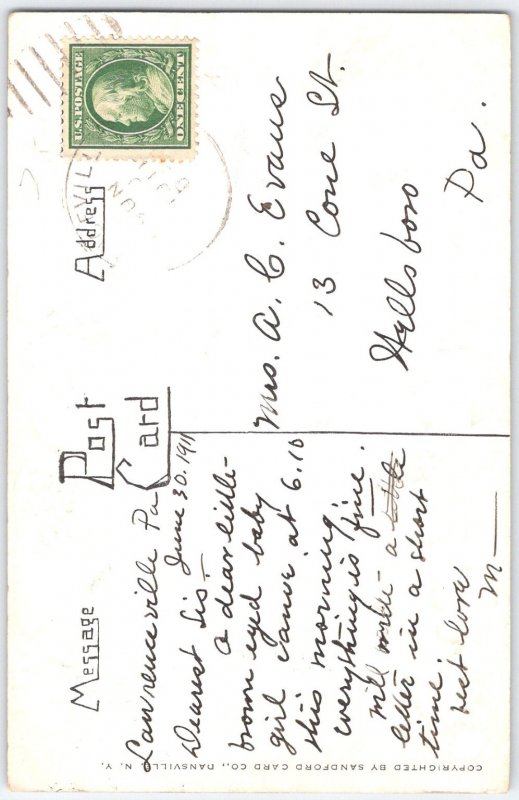 Post
Card
Message
Address
U.S. POSTAGE
ONE CENT
Lawrenceville Pa
June 30. 1911
Dearest Sis —
a dear little -
brown eyed baby
girl came at 6.10
this morning
everything is fine.
will write - a little
letter in a short
time.
best love
M —
Mrs. A. C. Evans
13 Cone St.
Wellsboro
Pa.
COPYRIGHTED BY SANDFORD CARD CO., DANSVILLE, N. Y.